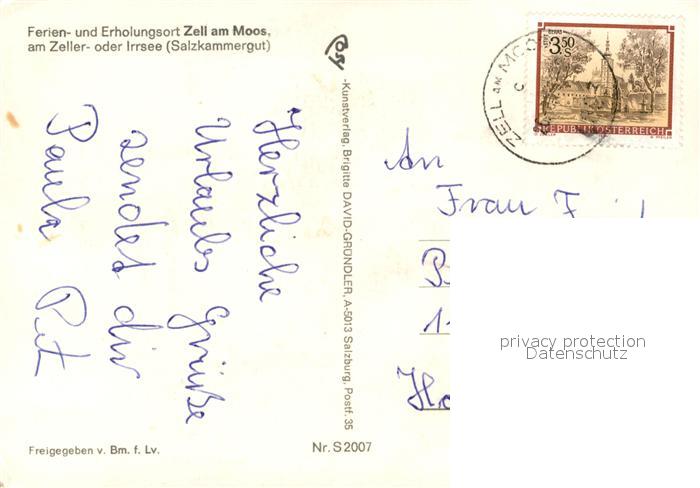 Ferien- und Erholungsort Zell am Moos,
am Zeller- oder Irrsee (Salzkammergut)
Herzliche
Urlaubs Grüße
sendet dir
Paula
-Kunstverlag, Brigitte DAVID-GRÜNDLER, A-5013 Salzburg, Postf. 35
Freigegeben v. Bm. f. Lv.
Nr. S 2007
ZELL AM MOOS
3.50
S
REPUBLIK ÖSTERREICH
An
Frau F
privacy protection
Datenschutz